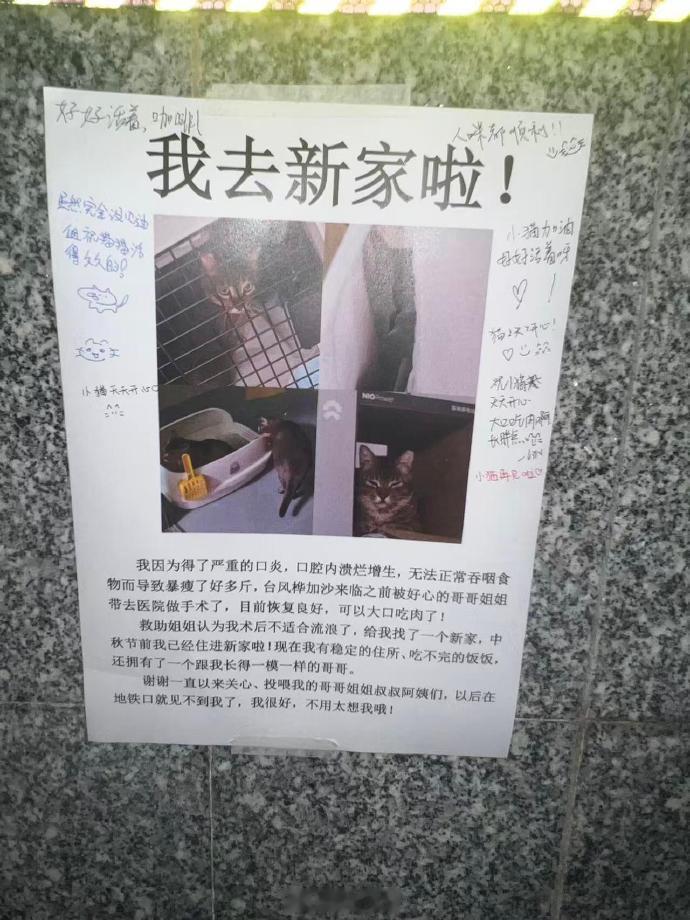 好好活着，咖啡
人咪都顺利！！
我去新家啦！
虽然完全没见过
但祝猫猫活
得久久的！
小猫天天开心
小猫加油
好好活着呀
猫天天开心！
天天开心
大口吃肉啊
小猫再见啦
NIO
我因为得了严重的口炎，口腔内溃烂增生，无法正常吞咽食
物而导致暴瘦了好多斤，台风桦加沙来临之前被好心的哥哥姐姐
带去医院做手术了，目前恢复良好，可以大口吃肉了！
救助姐姐认为我术后不适合流浪了，给我找了一个新家，中
秋节前我已经住进新家啦！现在我有稳定的住所、吃不完的饭饭，
还拥有了一个跟我长得一模一样的哥哥。
谢谢一直以来关心、投喂我的哥哥姐姐叔叔阿姨们，以后在
地铁口就见不到我了，我很好，不用太想我哦！